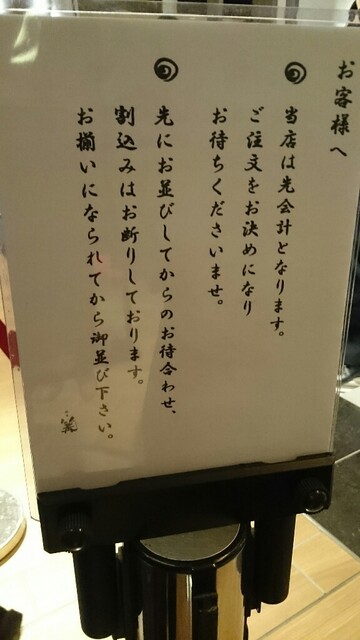 お客様へ
当店は先会計となります。
ご注文をお決めになり
お待ちくださいませ。
先にお並びしてからのお待合わせ、
割込みはお断りしております。
お揃いになられてから御並び下さい。